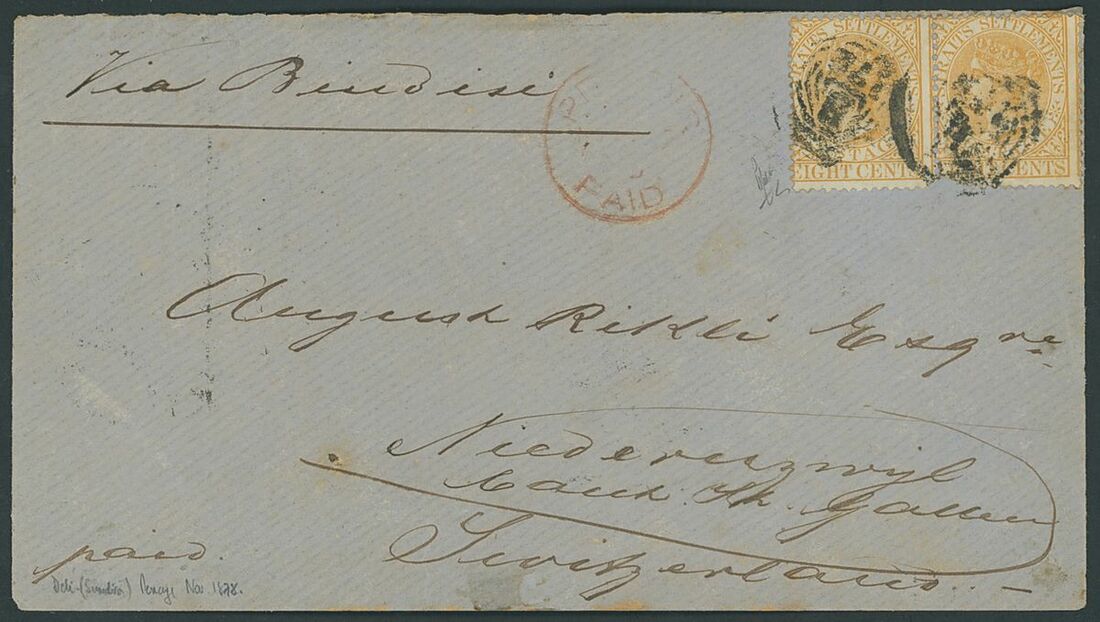 Via Bindisi
STRAITS SETTLEMENTS
EIGHT CENT
STRAITS SETTLEMENTS
CENTS
PAID
August Rikli Esqre
Niederuzwyl
Cant. St. Gallen
Switzerland
paid.
Deli (Sumatra) Penang Nov 1878.